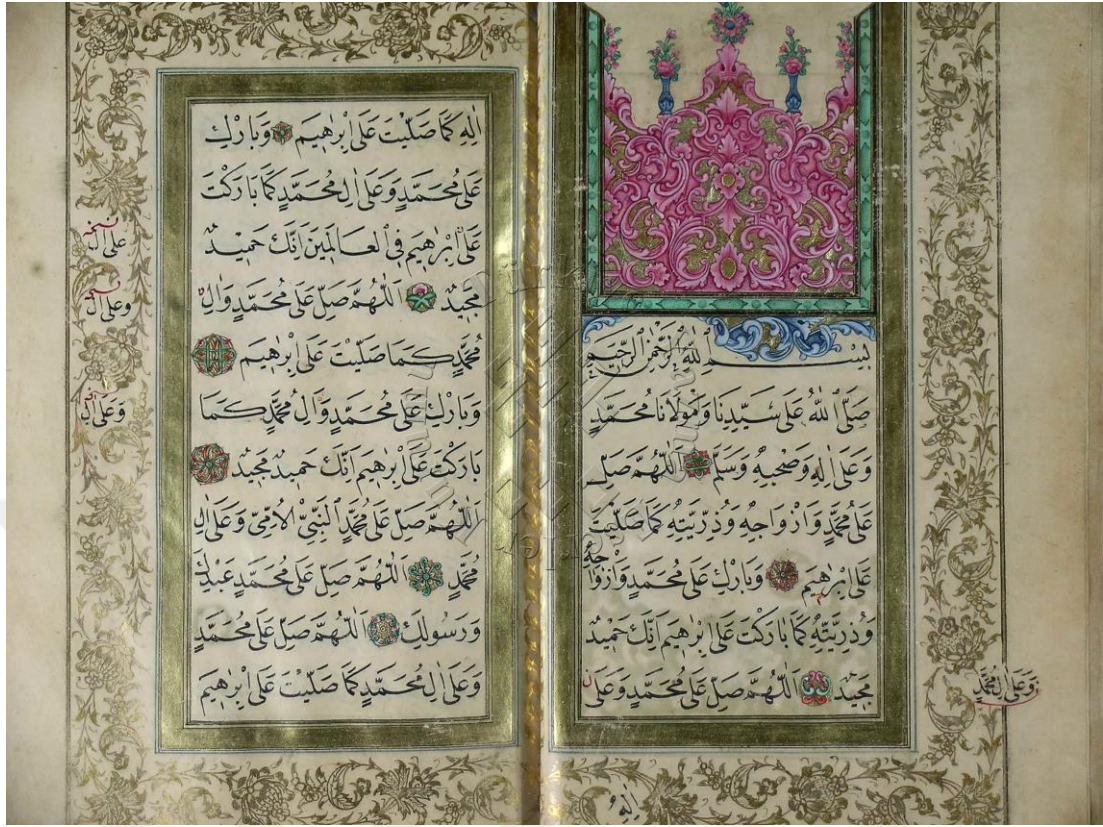 بِسْمِ اللّٰهِ الرَّحْمٰنِ الرَّحِيمِ
صَلَّى اللّٰهُ عَلٰى سَيِّدِنَا وَمَوْلَانَا مُحَمَّدٍ
وَعَلٰى اٰلِهِ وَصَحْبِهِ وَسَلَّمَ اَللّٰهُمَّ صَلِّ
عَلٰى مُحَمَّدٍ وَاَزْوَاجِهِ وَذُرِّيَّتِهِ كَمَا صَلَّيْتَ
عَلٰى اِبْرٰهِيمَ وَبَارِكْ عَلٰى مُحَمَّدٍ وَاَزْوَاجِهِ
وَذُرِّيَّتِهِ كَمَا بَارَكْتَ عَلٰى اِبْرٰهِيمَ اِنَّكَ حَمِيدٌ
مَجِيدٌ اَللّٰهُمَّ صَلِّ عَلٰى مُحَمَّدٍ وَعَلٰى
وَعَلٰى اٰلِ مُحَمَّدٍ
اٰلِهِ
اٰلِهِ كَمَا صَلَّيْتَ عَلٰى اِبْرٰهِيمَ وَبَارِكْ
عَلٰى مُحَمَّدٍ وَعَلٰى اٰلِ مُحَمَّدٍ كَمَا بَارَكْتَ
عَلٰى اِبْرٰهِيمَ فِي الْعَالَمِينَ اِنَّكَ حَمِيدٌ
مَجِيدٌ اَللّٰهُمَّ صَلِّ عَلٰى مُحَمَّدٍ وَاٰلِ
مُحَمَّدٍ كَمَا صَلَّيْتَ عَلٰى اِبْرٰهِيمَ
وَبَارِكْ عَلٰى مُحَمَّدٍ وَاٰلِ مُحَمَّدٍ كَمَا
بَارَكْتَ عَلٰى اِبْرٰهِيمَ اِنَّكَ حَمِيدٌ مَجِيدٌ
اَللّٰهُمَّ صَلِّ عَلٰى مُحَمَّدٍ النَّبِيِّ الْاُمِّيِّ وَعَلٰى اٰلِ
مُحَمَّدٍ اَللّٰهُمَّ صَلِّ عَلٰى مُحَمَّدٍ عَبْدِكَ
وَرَسُولِكَ اَللّٰهُمَّ صَلِّ عَلٰى مُحَمَّدٍ
وَعَلٰى اٰلِ مُحَمَّدٍ كَمَا صَلَّيْتَ عَلٰى اِبْرٰهِيمَ
نسخه
على ال
نسخه
وعلى ال
وَعَلٰى اٰلِ